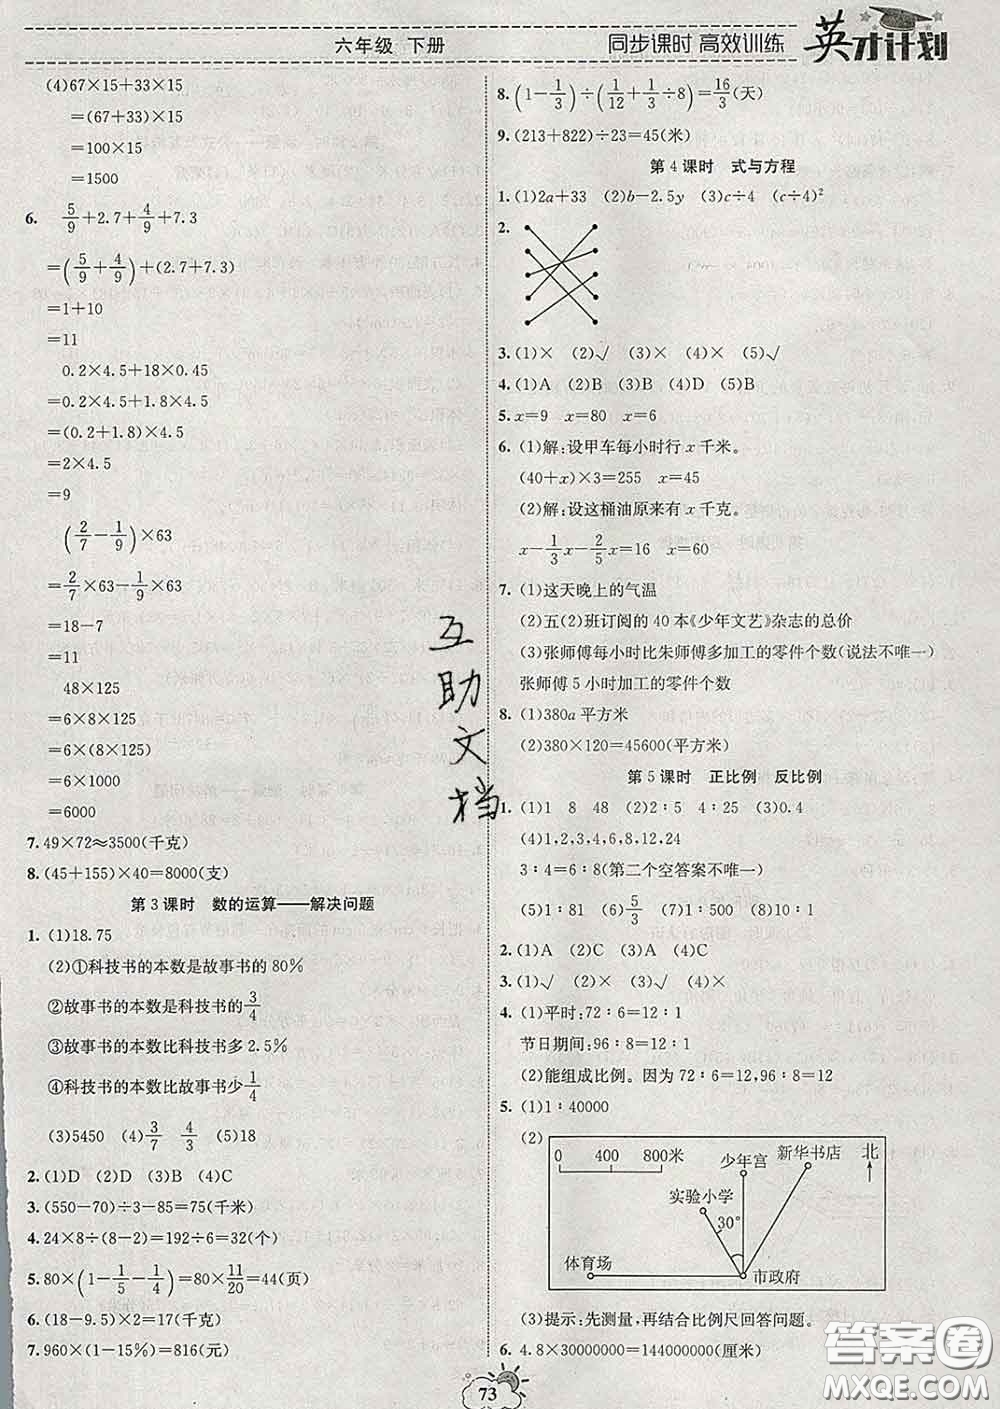 六年级 下册
同步课时 高效训练
英才计划
(4)67×15+33×15
=(67+33)×15
=100×15
=1500
6. 5/9+2.7+4/9+7.3
=(5/9+4/9)+(2.7+7.3)
=1+10
=11
0.2×4.5+18×0.45
=0.2×4.5+1.8×4.5
=(0.2+1.8)×4.5
=2×4.5
=9
(2/7-1/9)×63
=2/7×63-1/9×63
=18-7
=11
48×125
=6×8×125
=6×(8×125)
=6×1000
=6000
7. 49×72≈3500(千克)
8. (45+155)×40=8000(支)
第3课时 数的运算——解决问题
1. (1)18.75
(2)①科技书的本数是故事书的80%
②故事书的本数是科技书的3/4
③故事书的本数比科技书多2.5%
④科技书的本数比故事书少1/4
(3)5450 (4)3/7 4/3 (5)18
2. (1)D (2)D (3)B (4)C
3. (550-70)÷3-85=75(千米)
4. 24×8÷(8-2)=192÷6=32(个)
5. 80×(1-1/5-1/4)=80×11/20=44(页)
6. (18-9.5)×2=17(千克)
7. 960×(1-15%)=816(元)
8. (1-1/3)÷(1/12+1/3÷8)=16/3(天)
9. (213+822)÷23=45(米)
第4课时 式与方程
1. (1)2a+33 (2)b-2.5y (3)c÷4 (c÷4)²
2.
3. (1)× (2)√ (3)× (4)× (5)√
4. (1)A (2)B (3)B (4)D (5)B
5. x=9 x=80 x=6
6. (1)解:设甲车每小时行x千米。
(40+x)×3=255 x=45
(2)解:设这桶油原来有x千克。
x-1/3x-2/5x=16 x=60
7. (1)这天晚上的气温
(2)五(2)班订阅的40本《少年文艺》杂志的总价
(3)张师傅每小时比朱师傅多加工的零件个数(说法不唯一)
张师傅5小时加工的零件个数
8. (1)380a平方米
(2)380×120=45600(平方米)
第5课时 正比例 反比例
1. (1)1 8 48 (2)2:5 4:25 (3)0.4
(4)1,2,3,4,6,8,12,24
3:4=6:8(第二个空答案不唯一)
(5)1:81 (6)5/3 (7)1:500 (8)10:1
2. (1)A (2)C (3)A (4)C
3. (1)√ (2)× (3)√ (4)×
4. (1)平时:72:6=12:1
节日期间:96:8=12:1
(2)能组成比例。因为72:6=12,96:8=12
5. (1)1:40000
(2)
0 400 800米
少年宫
新华书店
北
实验小学
30°
体育场
市政府
(3)提示:先测量,再结合比例尺回答问题。
6. 4.8×30000000=144000000(厘米)
互助文档
73
答案圈
MXQE.COM